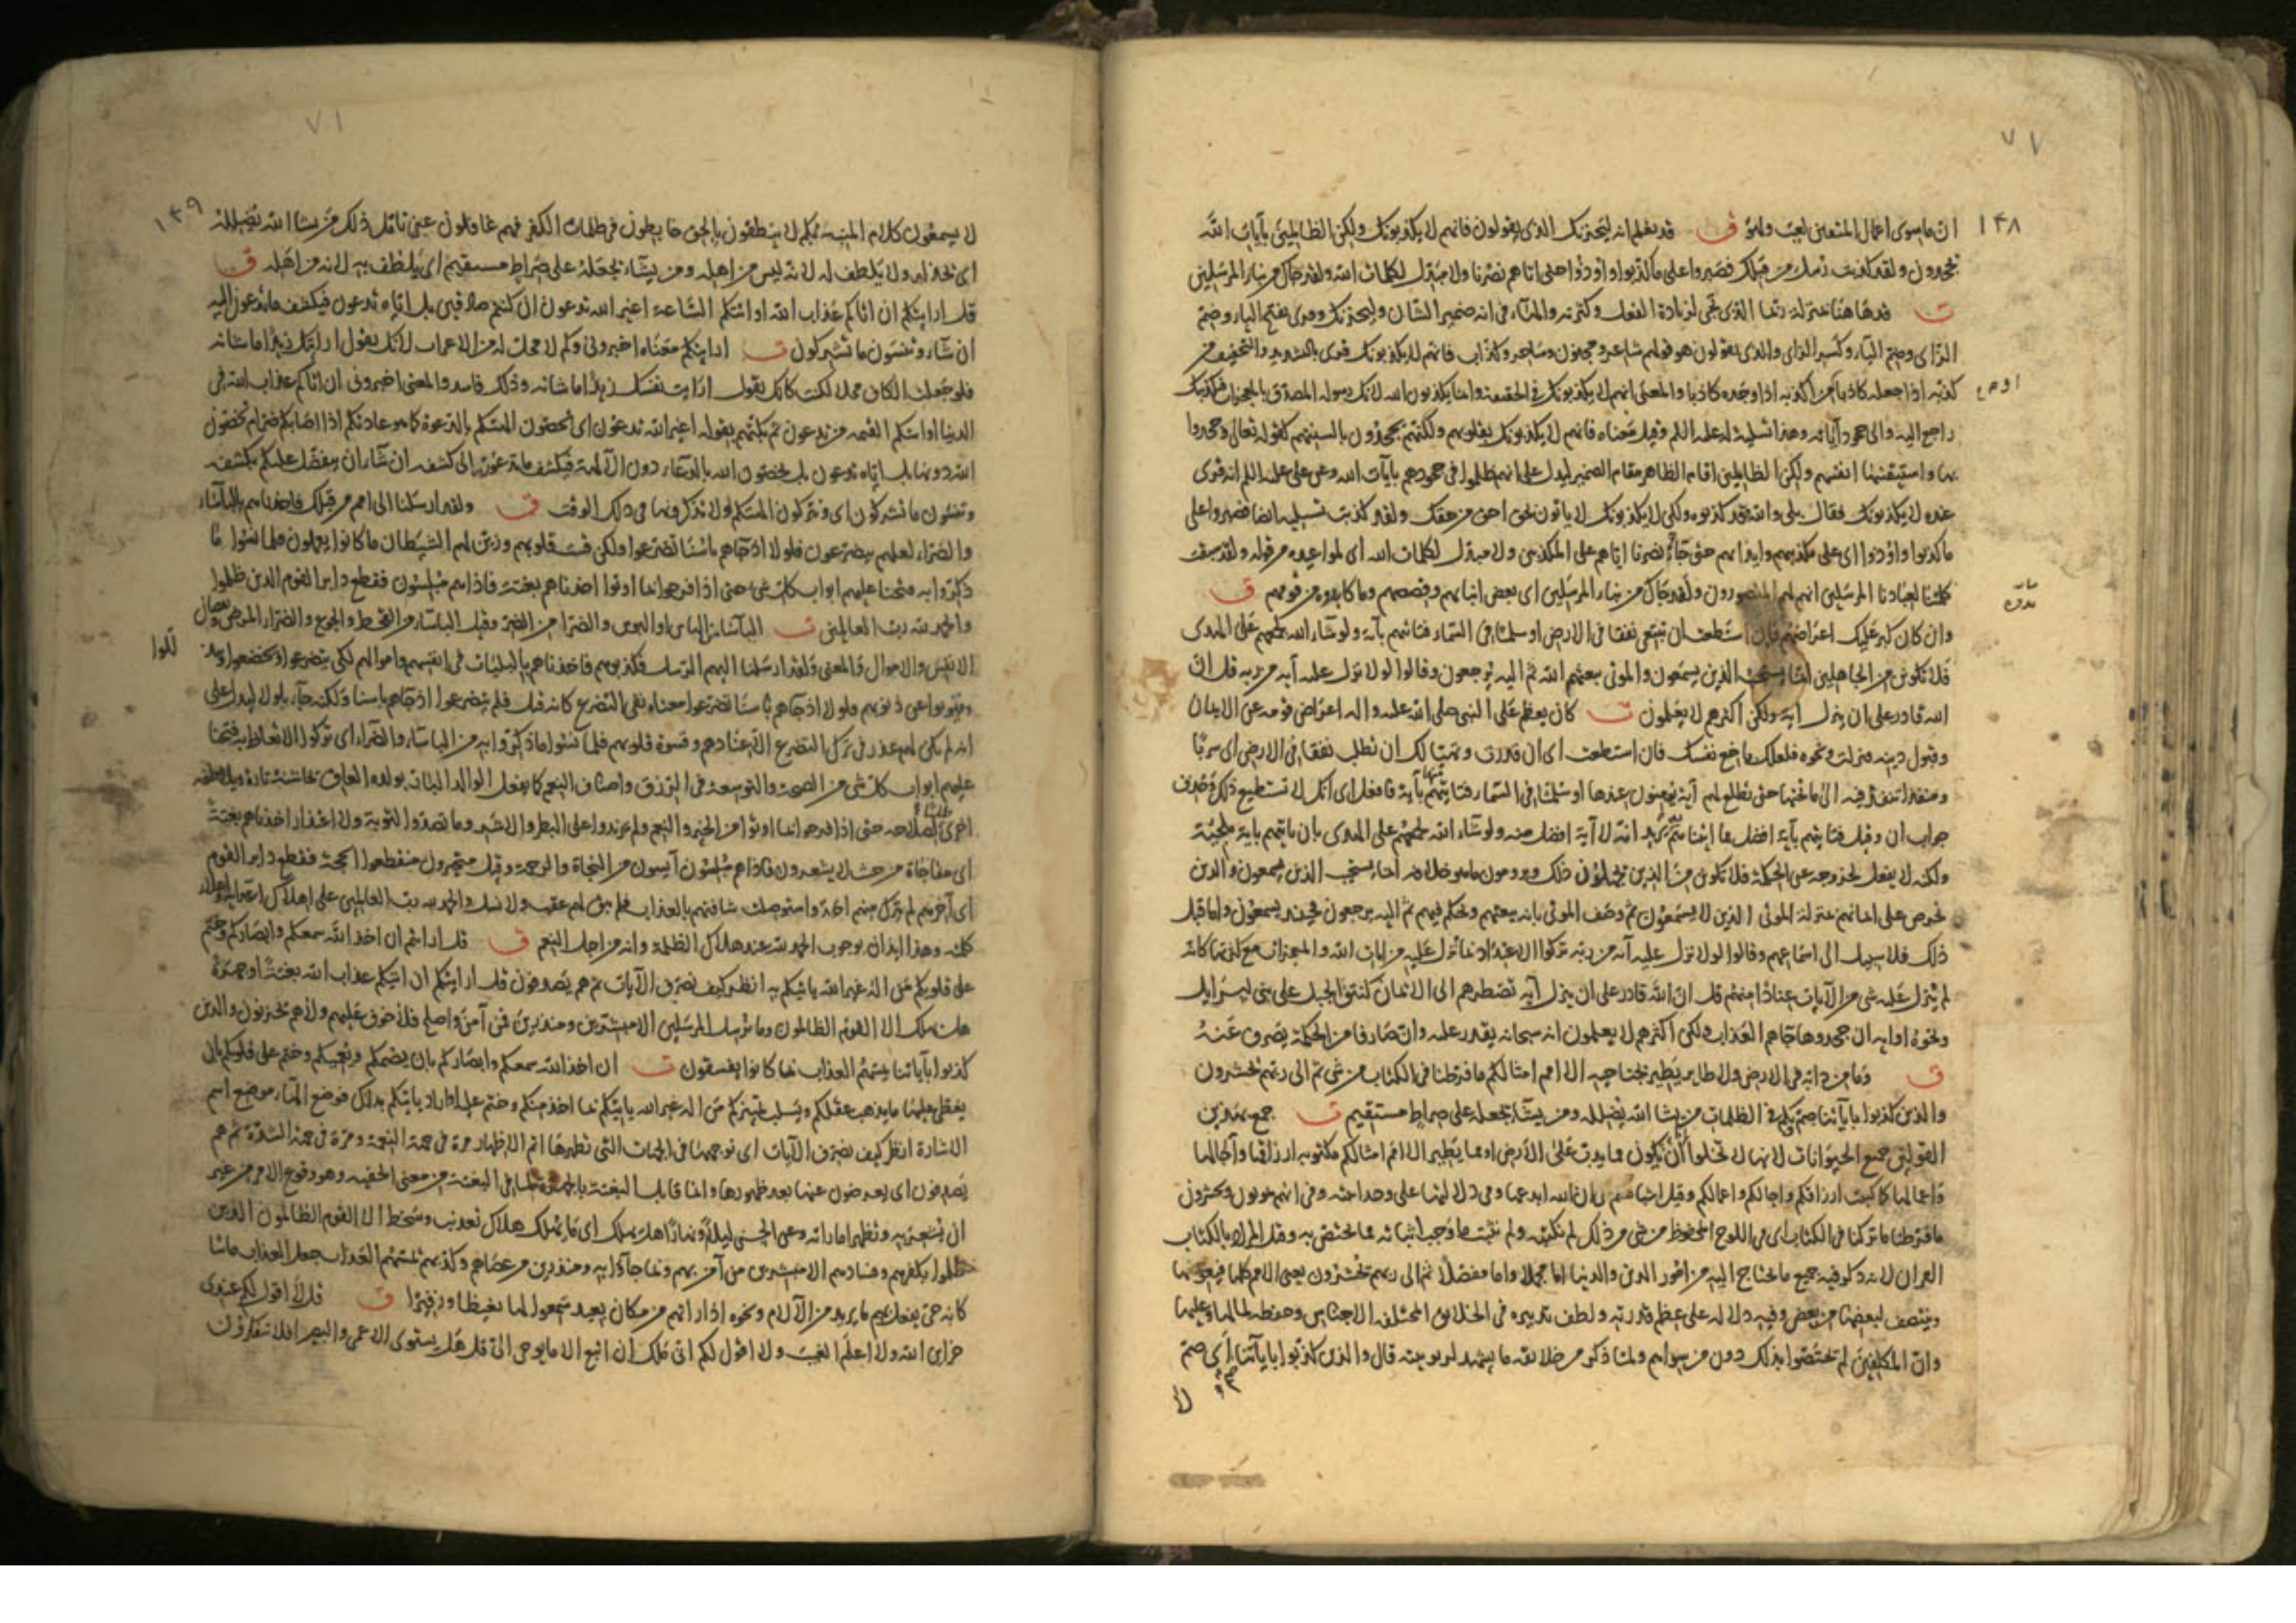 ١٣٨
ان ما سوى اعمال المتقين لعب ولهو ق قد نعلم انه ليحزنك الذى يقولون فانهم لا يكذبونك ولكن الظالمين بآيات الله
يجحدون ولقد كذبت رسل من قبلك فصبروا على ما كذبوا واوذوا حتى اتاهم نصرنا ولا مبدل لكلمات الله ولقد جاك من نباء المرسلين
ت قد هاهنا بمنزلة ربما الذى يجى لزيادة الفعل وكثرته والهاء فى انه ضمير الشان وليحزنك وقرى بفتح الياء وضم
الزاى وضم الياء وكسر الزاى والذى يقولون هو قولهم شاعر ومجنون وساحر وكذاب فانهم لا يكذبونك قرى بالتشديد والتخفيف من
كذبه اذا جعله كاذبا من اكذبه اذا وجده كاذبا والمعنى انهم لا يكذبونك فى الحقيقة وانما يكذبون الله لانك رسوله المصدق بالمعجزات فتكذيبك
راجع اليه والى جحود آياته وهذا تسلية له عليه السلم وقيل معناه فانهم لا يكذبونك بقلوبهم ولكنهم يجحدون بالسنتهم كقوله تعالى وجحدوا
بها واستيقنتها انفسهم ولكن الظالمين اقام الظاهر مقام الضمير ليدل على انهم ظلموا فى جحودهم بآيات الله وعن على عليه السلم انه قرى
عنده لا يكذبونك فقال بلى والله لقد كذبوه ولكن لا يكذبونك لا ياتون بحق احق من حقك ولقد كذبت تسلية ايضا فصبروا على
ما كذبوا واوذوا اى على تكذيبهم وايذائهم حتى جاء نصرنا اياهم على المكذبين ولا مبدل لكلمات الله اى لمواعيده من قوله ولقد سبقت
كلمتنا لعبادنا المرسلين انهم لهم المنصورون ولقد جاك من نباء المرسلين اى بعض انبائهم وقصصهم وما كابدوه من قومهم ق
وان كان كبر عليك اعراضهم فان استطعت ان تبتغى نفقا فى الارض او سلما فى السماء فتاتيهم بآية ولو شاء الله لجمعهم على الهدى
فلا تكونن من الجاهلين انما يستجيب الذين يسمعون والموتى يبعثهم الله ثم اليه يرجعون وقالوا لولا نزل عليه آية من ربه قل ان
الله قادر على ان ينزل آية ولكن اكثرهم لا يعلمون ت كان يعظم على النبى صلى الله عليه واله اعراض قومه عن الايمان
وقبول دينه فنزلت ونحوه فلعلك باخع نفسك فان استطعت اى ان قدرت وتهيا لك ان تطلب نفقا فى الارض اى سربا
ومنفذا تنفذ فيه الى ما تحتها حتى تطلع لهم آية يؤمنون عندها او سلما فى السماء فتاتيهم منها بآية فافعل اى انك لا تستطيع ذلك وحذف
جواب ان وقيل فتاتيهم بآية افضل مما اتيناهم به يريد انه لا آية افضل منه ولو شاء الله لجمعهم على الهدى بان ياتيهم باية ملجئة
ولكنه لا يفعل لخروجه عن الحكمة فلا تكونن من الذين يجهلون ذلك ويرومون ما هو خلافه انما يستجيب الذين يسمعون والذين
تحرص على ايمانهم بمنزلة الموتى الذين لا يسمعون ثم وصف الموتى بانه يبعثهم ويحكم فيهم ثم اليه يرجعون فحينئذ يسمعون واما قبل
ذلك فلا سبيل الى اسماعهم وقالوا لولا نزل عليه آية من ربه تركوا الاعتداد بما نزل عليه من ايات الله والمعجزات مع كثرتها كانه
لم ينزل عليه شى من الآيات عنادا منهم قل ان الله قادر على ان ينزل آية تضطرهم الى الايمان كنتق الجبل على بنى اسرايل
ونحوه او اية ان جحدوها جاهم العذاب ولكن اكثرهم لا يعلمون انه سبحانه يقدر عليه وان صارفا من الحكمة يصرف عنه
ق وما من دابة فى الارض ولا طاير يطير بجناحيه الا امم امثالكم ما فرطنا فى الكتاب من شى ثم الى ربهم يحشرون
والذين كذبوا باياتنا صم وبكم فى الظلمات من يشا الله يضلله ومن يشاء يجعله على صراط مستقيم ت جمع بهذين
القولين جميع الحيوانات لانها لا تخلوا ان تكون مما يدب على الارض او مما يطير الا امم امثالكم مكتوبه ارزاقها وآجالها
واعمالها كما كتبت ارزاقكم واجالكم واعمالكم وقيل اشباهكم
ما فرطنا ما تركنا فى الكتاب اى فى اللوح المحفوظ من شى من ذلك لم نكتبه ولم نثبت ما وجب اثباته مما يختص به وقيل المراد بالكتاب
القران لانه ذكر فيه جميع ما يحتاج اليه من امور الدين والدنيا اما مجملا واما مفصلا ثم الى ربهم يحشرون يعنى الامم كلها فيعوضها
وينتصف لبعضها من بعض وفيه دلالة على عظم قدرته ولطف تدبيره فى الخلايق المختلفه الاجناس وحفظه لما لها وعليها
وان المكلفين لم يختصوا بذلك دون من سواهم ولما ذكر من خلائقه ما يشهد لربوبيته قال والذين كذبوا باياتنا اى صم
١٣٩
لا يسمعون كلام المنبه بكم لا ينطقون بالحق خابطون فى ظلمات الكفر فهم غافلون عن تامل ذلك من يشا الله يضلله
اى يخذله ولا يلطف له لانه ليس من اهله ومن يشاء يجعله على صراط مستقيم اى يلطف به لانه من اهله ق
قل ارايتكم ان اتاكم عذاب الله او اتتكم الساعة اغير الله تدعون ان كنتم صادقين بل اياه تدعون فيكشف ما تدعون اليه
ان شاء وتنسون ما تشركون ت ارايتكم معناه اخبرونى وكم لا محل له من الاعراب لانك تقول ارايتك زيدا ما شانه
فلو جعلت الكاف محلا لكنت كانك تقول ارايت نفسك زيدا ما شانه وذلك فاسد والمعنى اخبرونى ان اتاكم عذاب الله فى
الدنيا او اتتكم القيمه من تدعون ثم بكتهم بقوله اغير الله تدعون اى اتخصون الهتكم بالدعوة كما هو عادتكم اذا اصابكم ضر ام تخصون
الله دونها بل اياه تدعون بل تخصون الله بالدعاء دون الآلهة فيكشف ما تدعون الى كشفه ان شاء ان يتفضل عليكم بكشفه
وتنسون ما تشركون اى وتتركون الهتكم ولا تذكرونها فى ذلك الوقت ق ولقد ارسلنا الى امم من قبلك فاخذناهم بالباساء
والضراء لعلهم يتضرعون فلولا اذ جاهم باسنا تضرعوا ولكن قست قلوبهم وزين لهم الشيطان ما كانوا يعملون فلما نسوا ما
ذكروا به فتحنا عليهم ابواب كل شى حتى اذا فرحوا بما اوتوا اخذناهم بغتة فاذا هم مبلسون فقطع دابر القوم الذين ظلموا
والحمد لله رب العالمين ت الباساء من الباس او البوس والضراء من الضر وقيل الباساء من القحط والجوع والضراء المرض ونقصان
الانفس والاموال والمعنى ولقد ارسلنا اليهم الرسل فكذبوهم فاخذناهم بالبليات فى انفسهم واموالهم لكى يتضرعوا ويخضعوا
ويتوبوا عن ذنوبهم فلولا اذ جاهم باسنا تضرعوا معناه نفى التضرع كانه قيل فلم يتضرعوا اذ جاهم باسنا ولكنه جاء بلولا ليدل على
انه لم يكن لهم عذر فى ترك التضرع الا عنادهم وقسوة قلوبهم فلما نسوا ما ذكروا به من الباساء والضراء اى تركوا الاتعاظ به فتحنا
عليهم ابواب كل شى من الصحة والتوسعة فى الرزق واصناف النعم كما يفعل الوالد البار بولده العاق يخاشنه تارة ويلاطفه
اخرى طلبا لصلاحه حتى اذا فرحوا بما اوتوا من الخير والنعم ولم يزيدوا على البطر والاشر وما تصدوا لتوبة ولا اعتذار اخذناهم بغتة
اى مفاجاة من حيث لا يشعرون فاذا هم مبلسون آيسون من النجاة والرحمة وقيل متحيرون منقطعوا الحجة فقطع دابر القوم
اى آخرهم لم يترك منهم احد واستوصلت شافتهم بالعذاب فلم يبق لهم عقب ولا نسل والحمد لله رب العالمين على اهلاك اعدائه واعلاء
كلمته وهذا ايذان بوجوب الحمد لله عند هلاك الظلمة وانه من اجل النعم ق قل ارايتم ان اخذ الله سمعكم وابصاركم وختم
على قلوبكم من اله غير الله ياتيكم به انظر كيف نصرف الآيات ثم هم يصدفون قل ارايتكم ان اتيكم عذاب الله بغتة او جهرة
هل يهلك الا القوم الظالمون وما نرسل المرسلين الا مبشرين ومنذرين فمن آمن واصلح فلا خوف عليهم ولا هم يحزنون والذين
كذبوا بآياتنا يمسهم العذاب بما كانوا يفسقون ت ان اخذ الله سمعكم وابصاركم بان يصمكم ويعميكم وختم على قلوبكم بان
يغطى عليها ما يذهب عقلكم ويسلب تمييزكم من اله غير الله ياتيكم بما اخذ منكم وختم عليه او اراد ياتيكم بذلك فوضع الهاء موضع اسم
الاشارة انظر كيف نصرف الآيات اى نوجهها فى الجهات التى نظهرها اتم الاظهار مرة فى جهة النعمة ومرة فى جهة الشدة ثم هم
يصدفون اى يعرضون عنها بعد ظهورها وانما قابل البغتة بالجهرة لما فى البغتة من معنى الخفيه وهو وقوع الامر من غير
ان يشعر به وتظهر اماراته وعن الحسن ليلا ونهارا هل يهلك اى ما يهلك هلاك تعذيب وسخط الا القوم الظالمون الذين
ظلموا بكفرهم وفسادهم الا مبشرين من آمن بهم وبما جاوا به ومنذرين من عصاهم وكذبهم يمسهم العذاب جعل العذاب ماسا
كانه حى يفعل بهم ما يريد من الآلام ونحوه اذا راتهم من مكان بعيد سمعوا لها تغيظا وزفيرا ق قل لا اقول لكم عندى
خزاين الله ولا اعلم الغيب ولا اقول لكم انى ملك ان اتبع الا ما يوحى الى قل هل يستوى الاعمى والبصير افلا تتفكرون